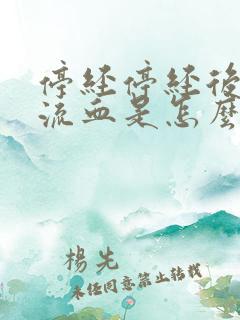 停經停經後
流血是怎麼
楊先
未經同意禁止轉載